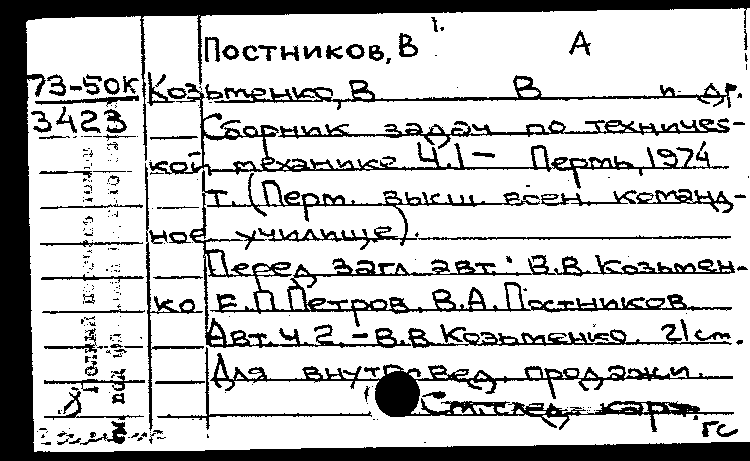 1.
Постников, В А
73-50к Козьменко, В В и др.
3423 Сборник задач по техничес-
кой механике Ч.1 – Пермь, 1974
т. (Перм. высш. воен. команд-
ное училище).
Перед загл. авт.: В.В. Козьмен-
ко Е.П. Петров. В.А. Постников
Авт. ч. 2. – В.В Козьменко. 21 см.
Для внутривед. продажи.
См. след. карт.
гс
Полный перечень томов
см. под